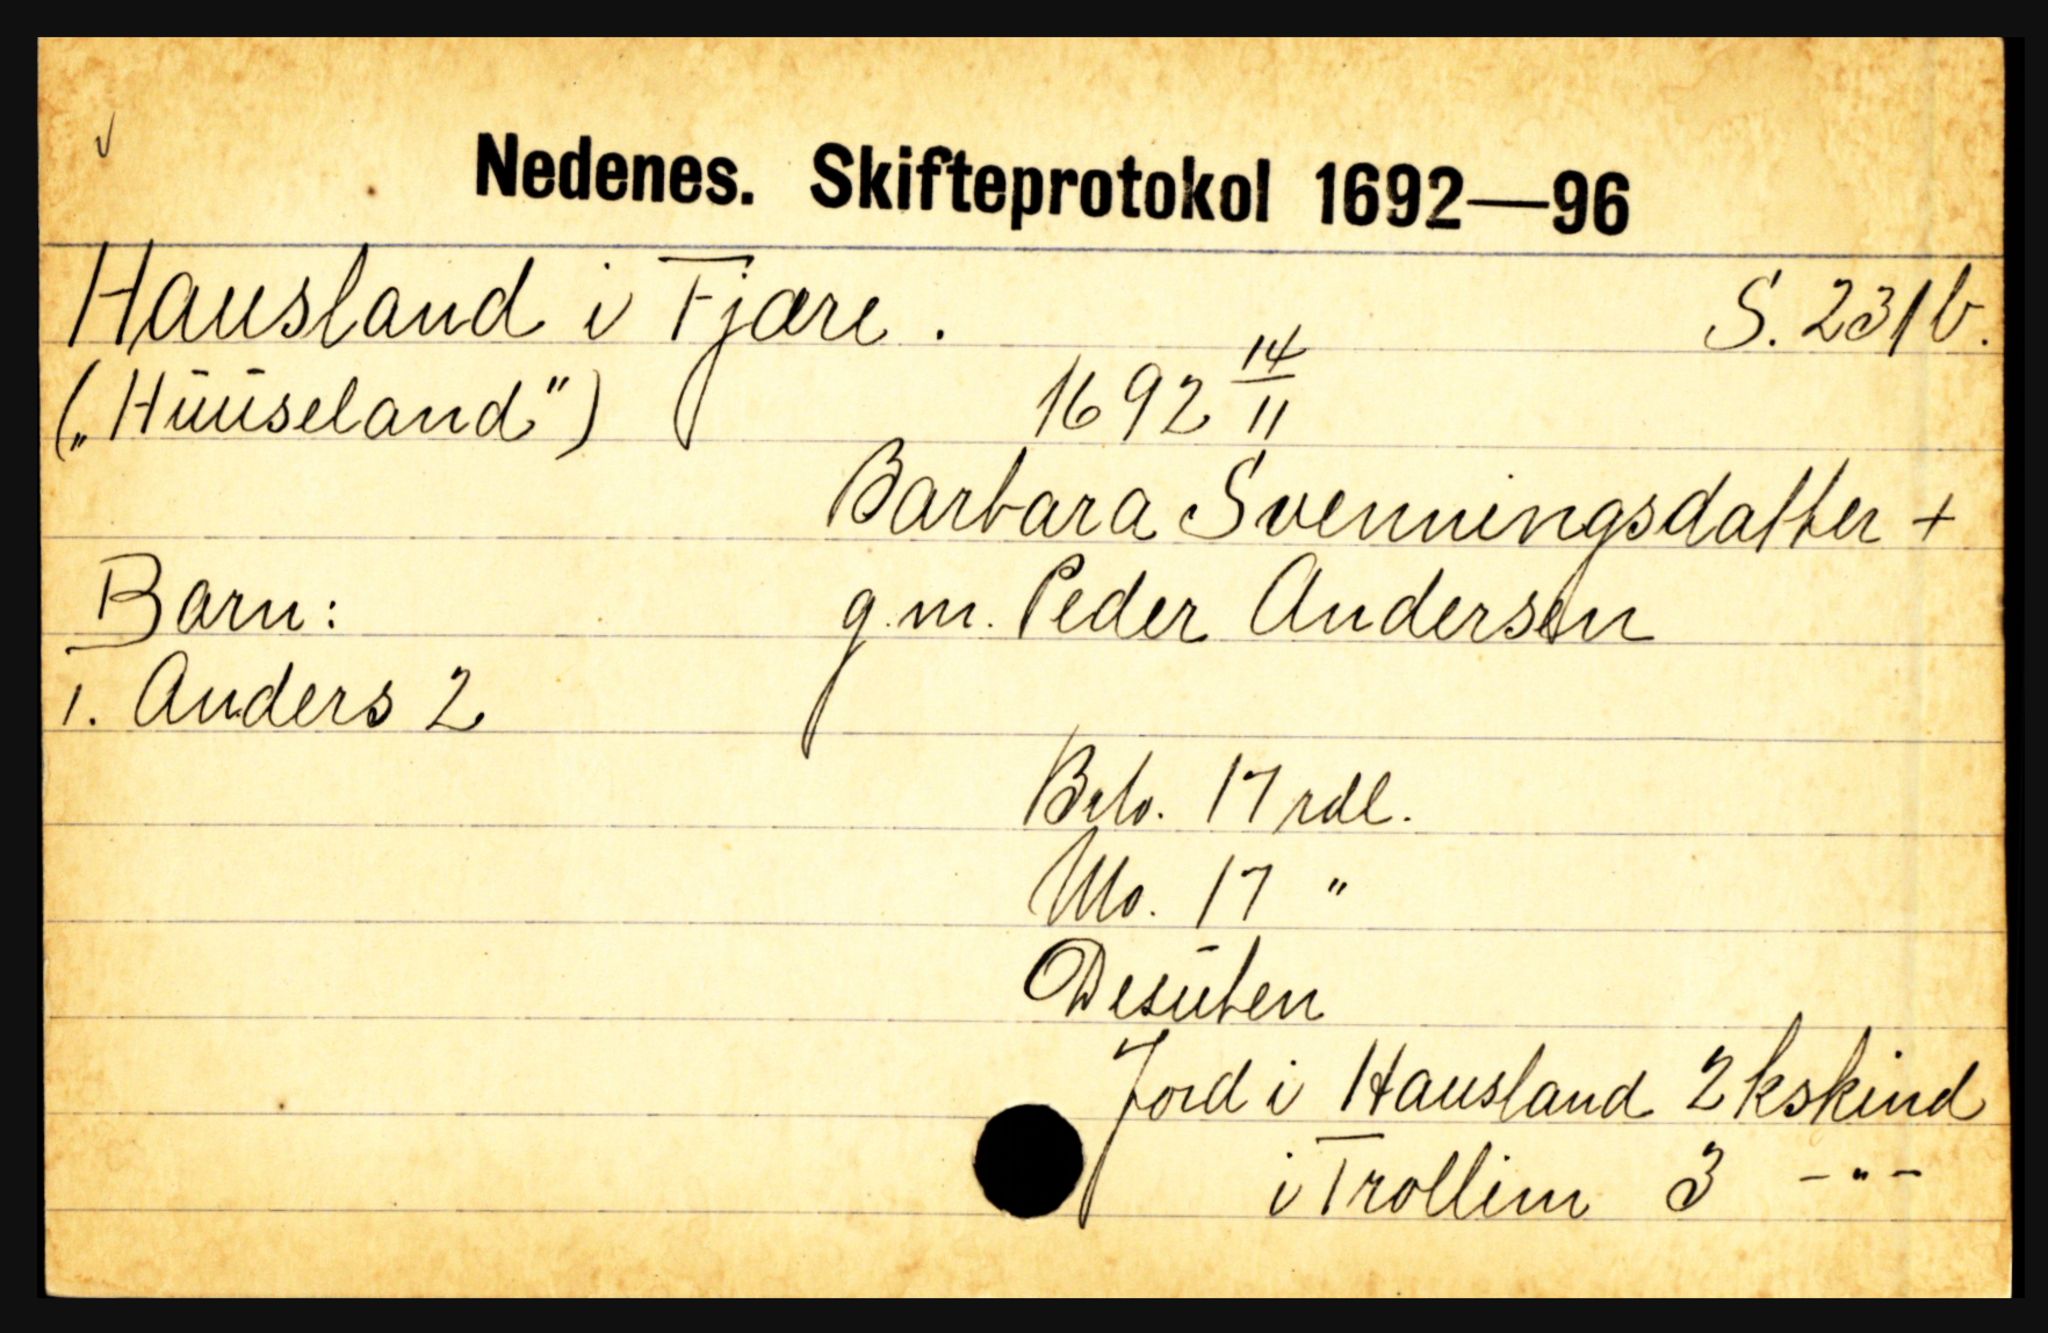 Nedenes. Skifteprotokol 1692—96
Hausland i Fjære. S. 231b.
("Huuseland") 1692 14/11
Barbara Svenningsdatter +
Barn: g.m. Peder Andersen
1. Anders 2
Brto. 17 rdl.
Nto. 17 "
Desuten
Jord i Hausland 2 kskind
i Trollim 3 -"-